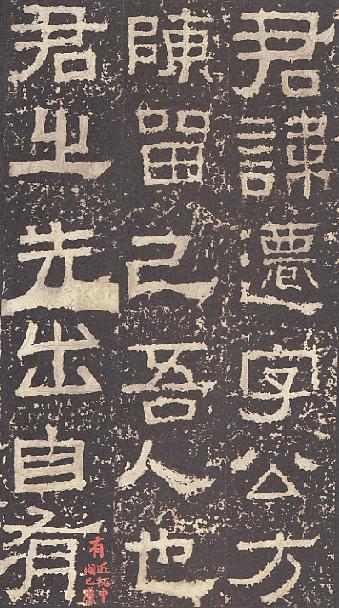 君諱遷字公方
陳留己吾人也
君之先出自有
有